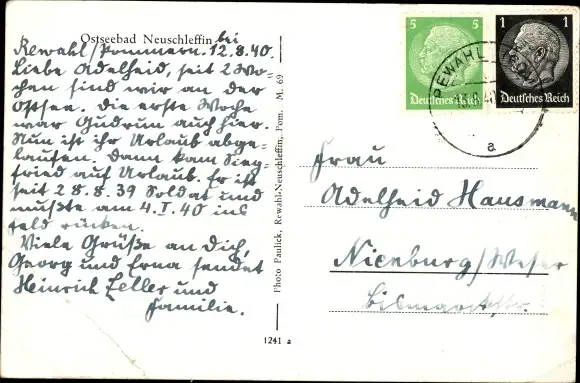 Ostseebad Neuschleffin bei
Rewahl/Pommern. 12.8.40.
Liebe Adelheid, seit 2 Wo-
chen sind wir an der
Ostsee. Die erste Woche
war Gudrun auch hier.
Nun ist ihr Urlaub abge-
laufen. Dann kam Sieg-
fried auf Urlaub. Er ist
seit 28.8.39 Soldat und
mußte am 4.I.40 ins
Feld rücken.
Viele Grüße an Dich,
Georg und Erna sendet
Heinrich Zeller und
Familie.
Photo Paulick, Rewahl-Neuschleffin, Pom. M. 69
1241 a
5 5
Deutsches Reich
1 1
Deutsches Reich
REWAHL
a
Frau
Adelheid Hausmann
Nienburg/Weser
Bismarckstr.